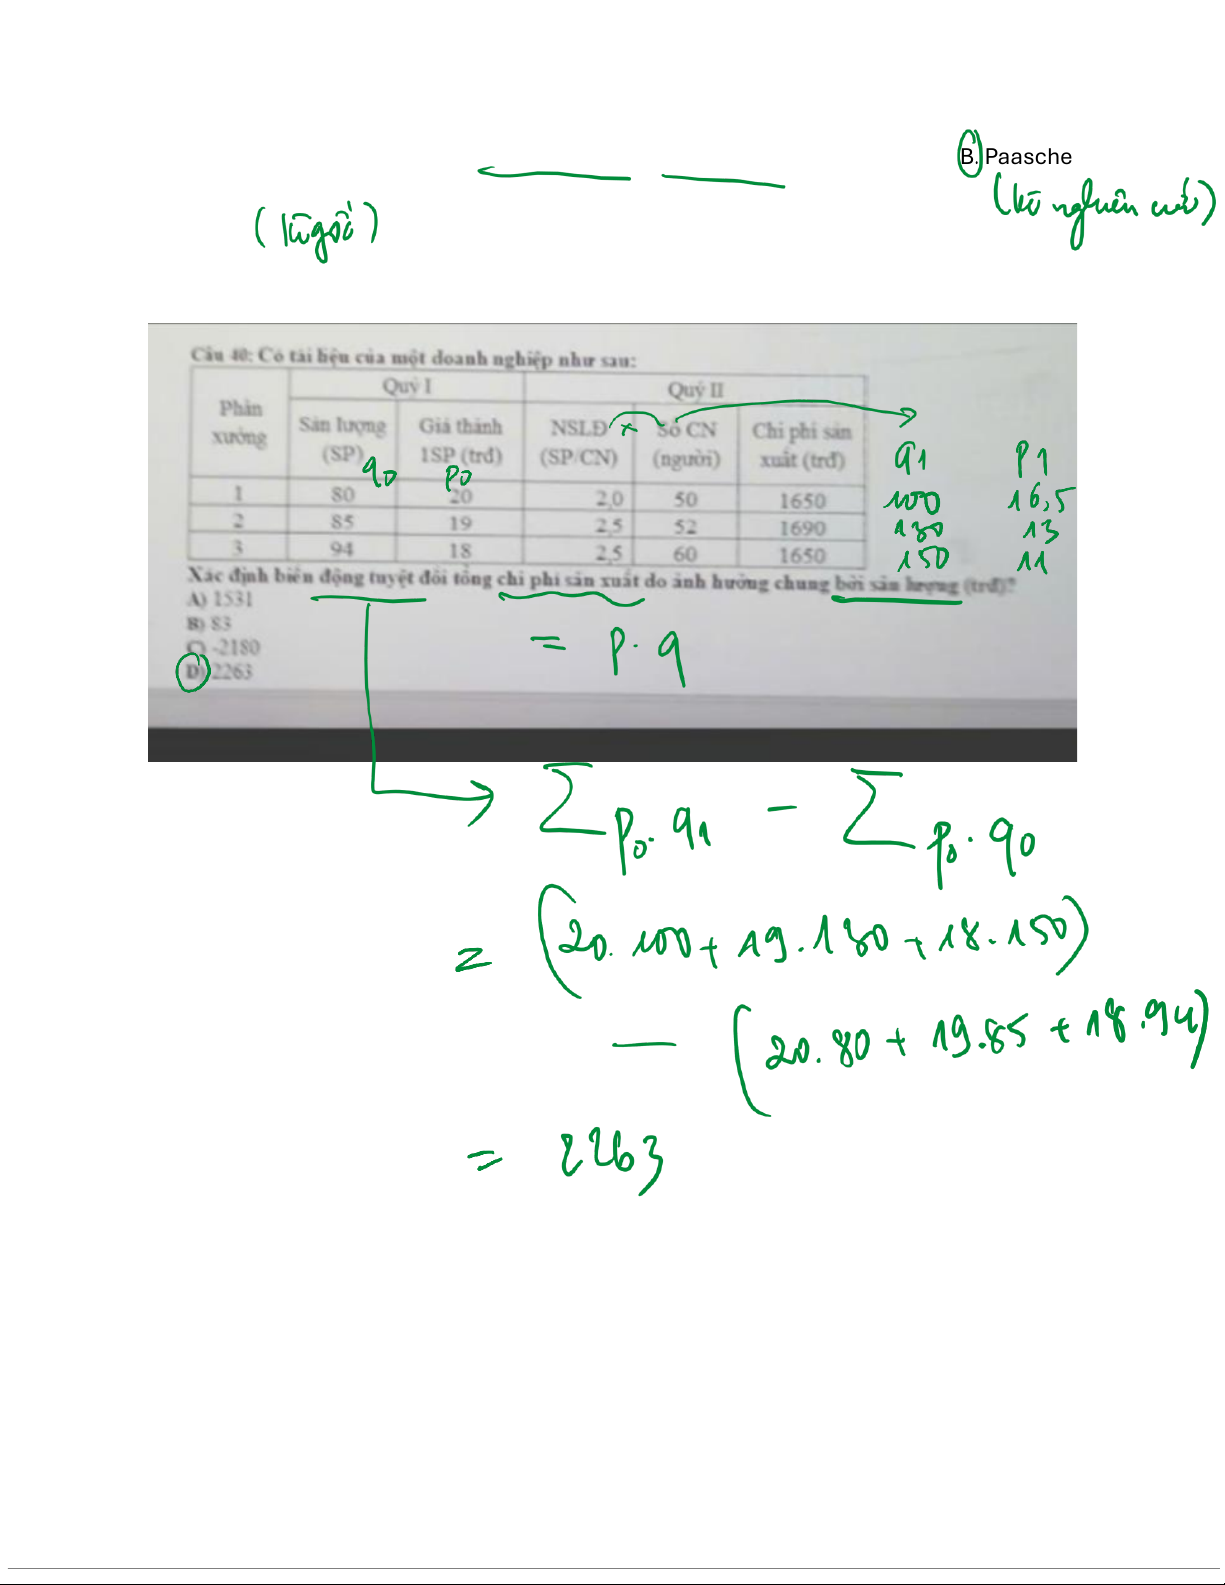 B. Paasche
(kì gốc)
(kì nghiên cứu)
Câu 40: Có tài liệu của một doanh nghiệp như sau:
Phân xưởng Quý I Quý II
Sản lượng (SP) q0 Giá thành 1SP (trđ) p0 NSLĐ (SP/CN) × Số CN (người) Chi phí sản xuất (trđ) q1 p1
1 80 20 2,0 50 1650 100 16,5
2 85 19 2,5 52 1690 130 13
3 94 18 2,5 60 1650 150 11
Xác định biến động tuyệt đối tổng chi phí sản xuất do ảnh hưởng chung bởi sản lượng (trđ)?
A) 1531
B) 83
C) -2180
D) 2263
= p.q
∑p0.q1 - ∑p0.q0
= (20.100 + 19.130 + 18.150)
- (20.80 + 19.85 + 18.94)
= 2263